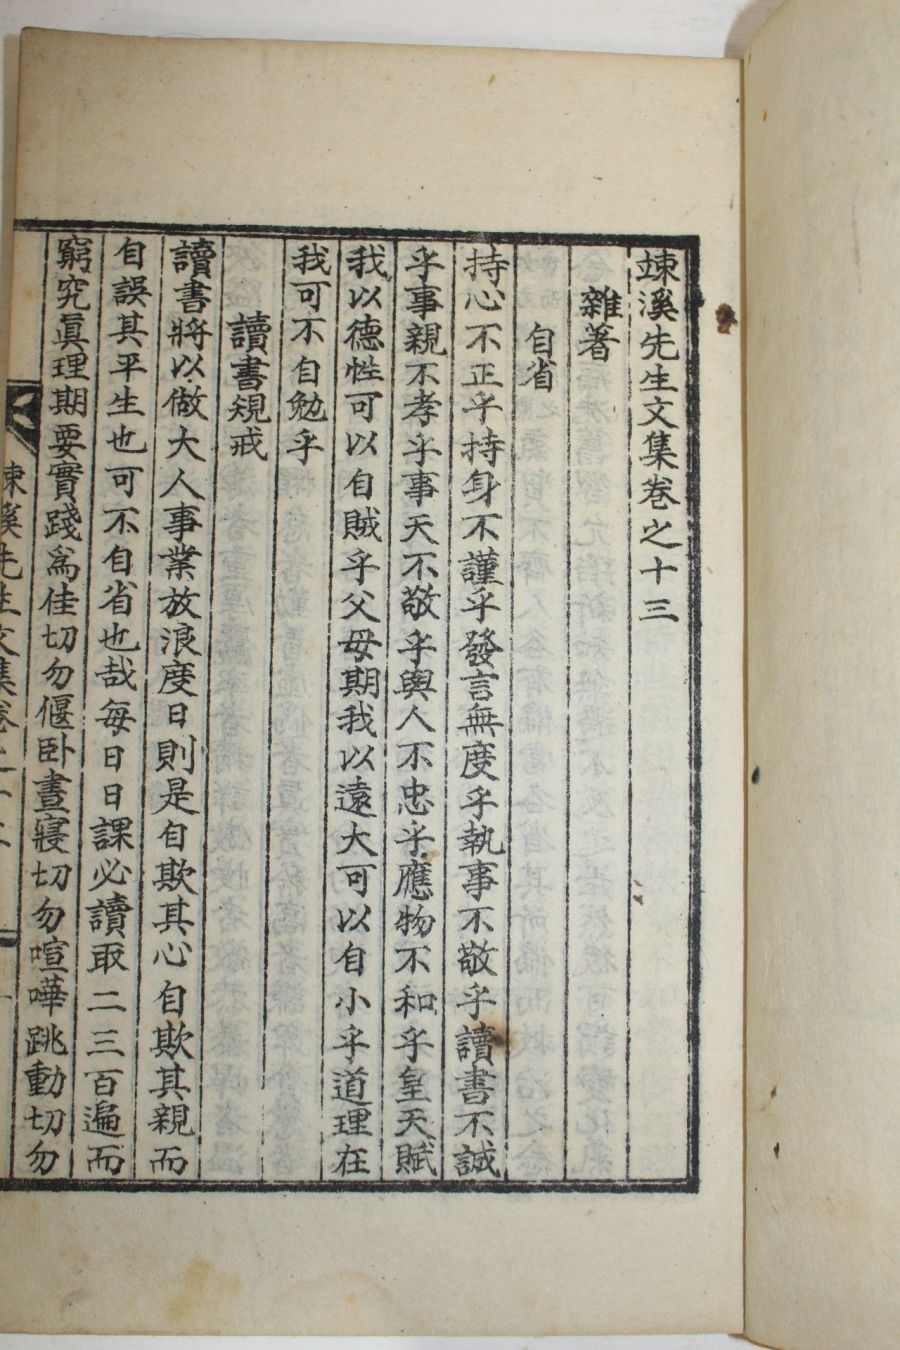 竦溪先生文集卷之十三
雜著
自省
持心不正乎持身不謹乎發言無度乎執事不敬乎讀書不誠
乎事親不孝乎事天不敬乎與人不忠乎應物不和乎皇天賦
我以德性可以自賊乎父母期我以遠大可以自小乎道理在
我可不自勉乎
讀書規戒
讀書將以做大人事業放浪度日則是自欺其心自欺其親而
自誤其平生也可不自省也哉每日日課必讀取二三百遍而
窮究眞理期要實踐爲佳切勿偃卧晝寢切勿喧嘩跳動切勿
溪先生文集卷之十三